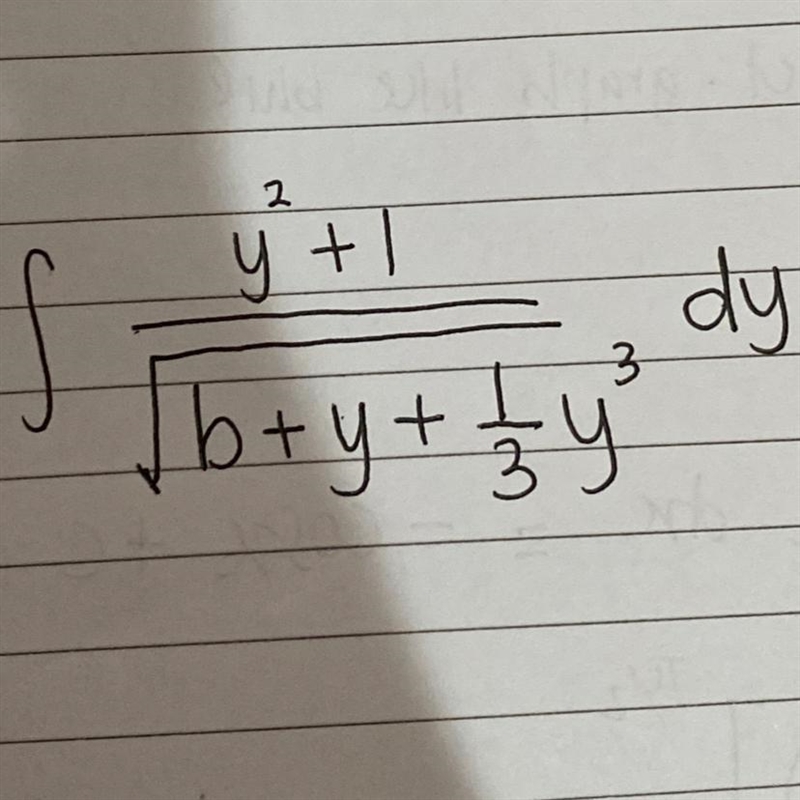 ∫ (y² + 1) / √(b + y + 1/3 y³) dy